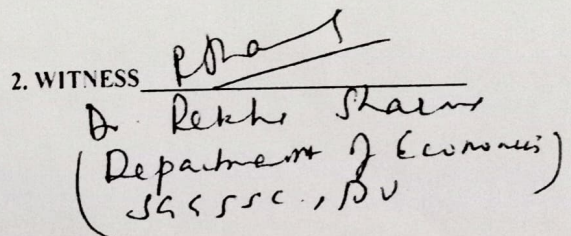 2. WITNESS
Dr Rekha Sharma
(Department of Economics)
SGGSSC., DU